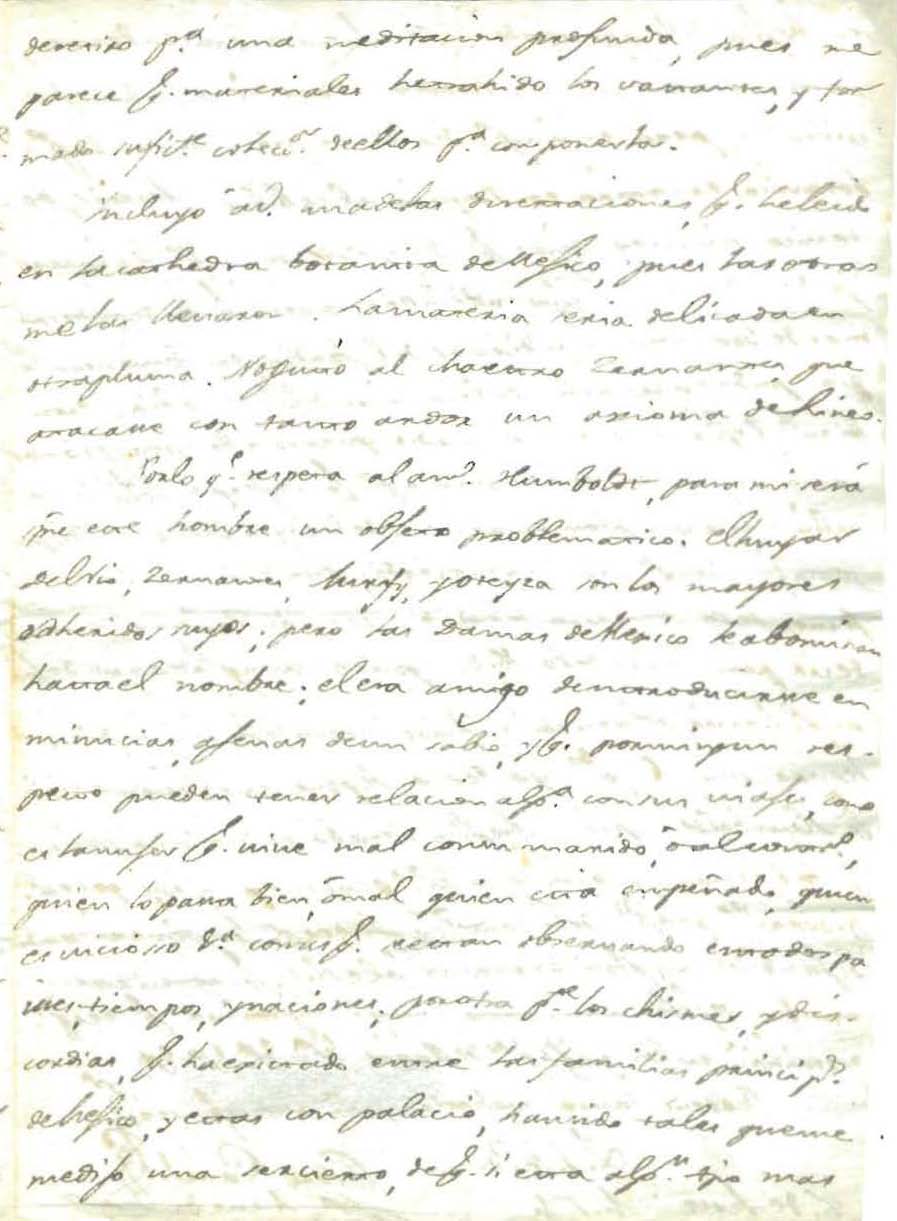 deretiro p.ª una meditacion profunda, pues me
parece q. materiales hetrahido los vastantes, y for
mado sufict.e colecc.n deellos p.ª componerlos.
incluyo â vd. unadelas disertaciones, q. heleido
en lacathedra botanica deMegico, pues lasotras
melas llevaron. Lamateria seria delicada en
otrapluma. Nogustó al Maestro Zervantes, que
atacase con tanto ardor un axioma deLineo.
Porlo q.e respeta al am.o Humboldt, para mi será
spre este hombre un obgeto problematico. Elhuyar
delRio, Zervantes, y Oteyza son los mayores
adheridos suyos; pero las Damas deMexico leabominan
hastael nombre: elera amigo deintroducirse en
minucias, agenas deun sabio, y q. porningun res-
pecto pueden tener relacion alg.ª consus viages, como
es lamuger q. vive mal consu marido, ô alcontrar.o,
quien lo pasa bien, ômal quien esta empeñado, quien
es vicioso d.ª cosas q. seestan observando entodos pa
ises, tiempos, ynaciones; porotra p.te los chismes, ydis-
cordias, q. haexcitado entre las familias princip.s
deMegico, yestas con palacio, haviendo tales queme
medijo una serciorro, deq. si esta alg.n tpo mas